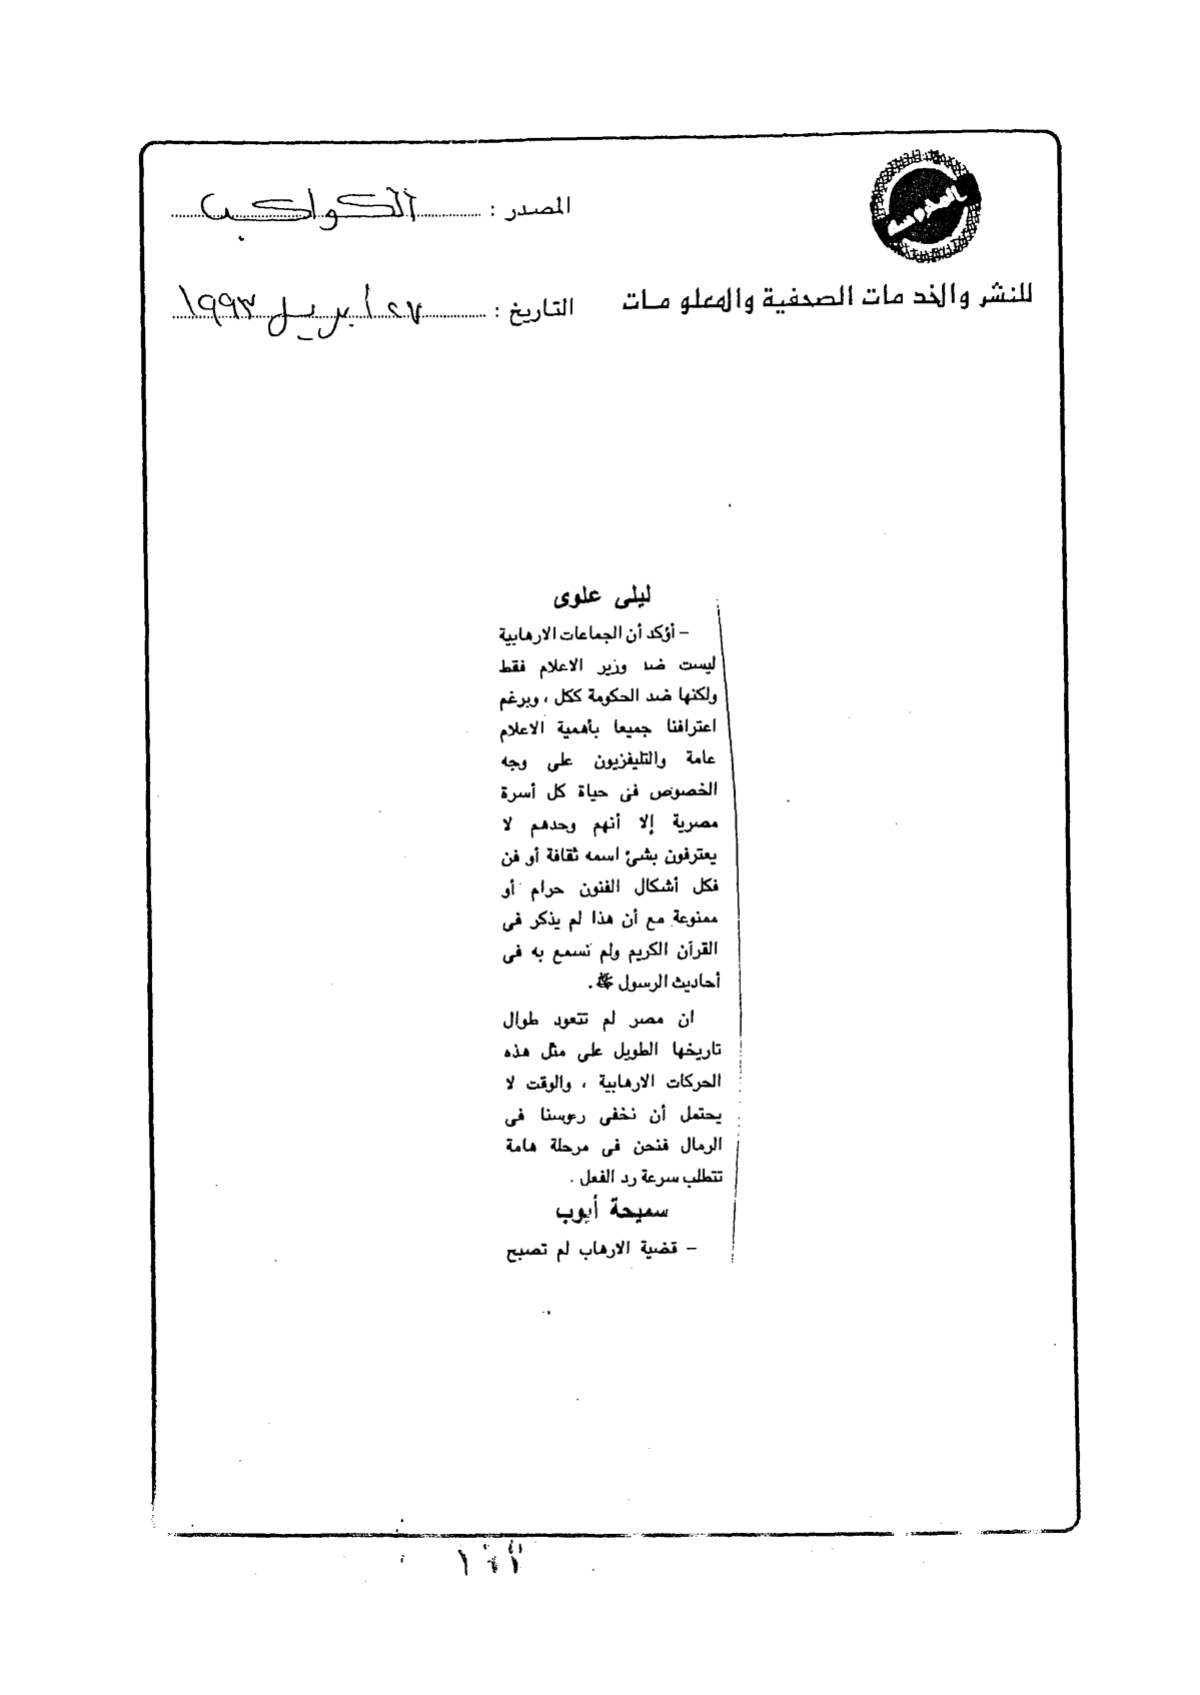 المصدر : الكواكب
للنشر والخدمات الصحفية والمعلومات
التاريخ : ٢٧ أبريل ١٩٩٣
ليلى علوى
– أؤكد أن الجماعات الارهابية
ليست ضد وزير الاعلام فقط
ولكنها ضد الحكومة ككل ، وبرغم
اعترافنا جميعا بأهمية الاعلام
عامة والتليفزيون على وجه
الخصوص فى حياة كل أسرة
مصرية إلا أنهم وحدهم لا
يعترفون بشئ اسمه ثقافة أو فن
فكل أشكال الفنون حرام أو
ممنوعة مع أن هذا لم يذكر فى
القرآن الكريم ولم نسمع به فى
أحاديث الرسول ﷺ .
ان مصر لم تتعود طوال
تاريخها الطويل على مثل هذه
الحركات الارهابية ، والوقت لا
يحتمل أن نخفى رءوسنا فى
الرمال فنحن فى مرحلة هامة
تتطلب سرعة رد الفعل .
سميحة أيوب
– قضية الارهاب لم تصبح